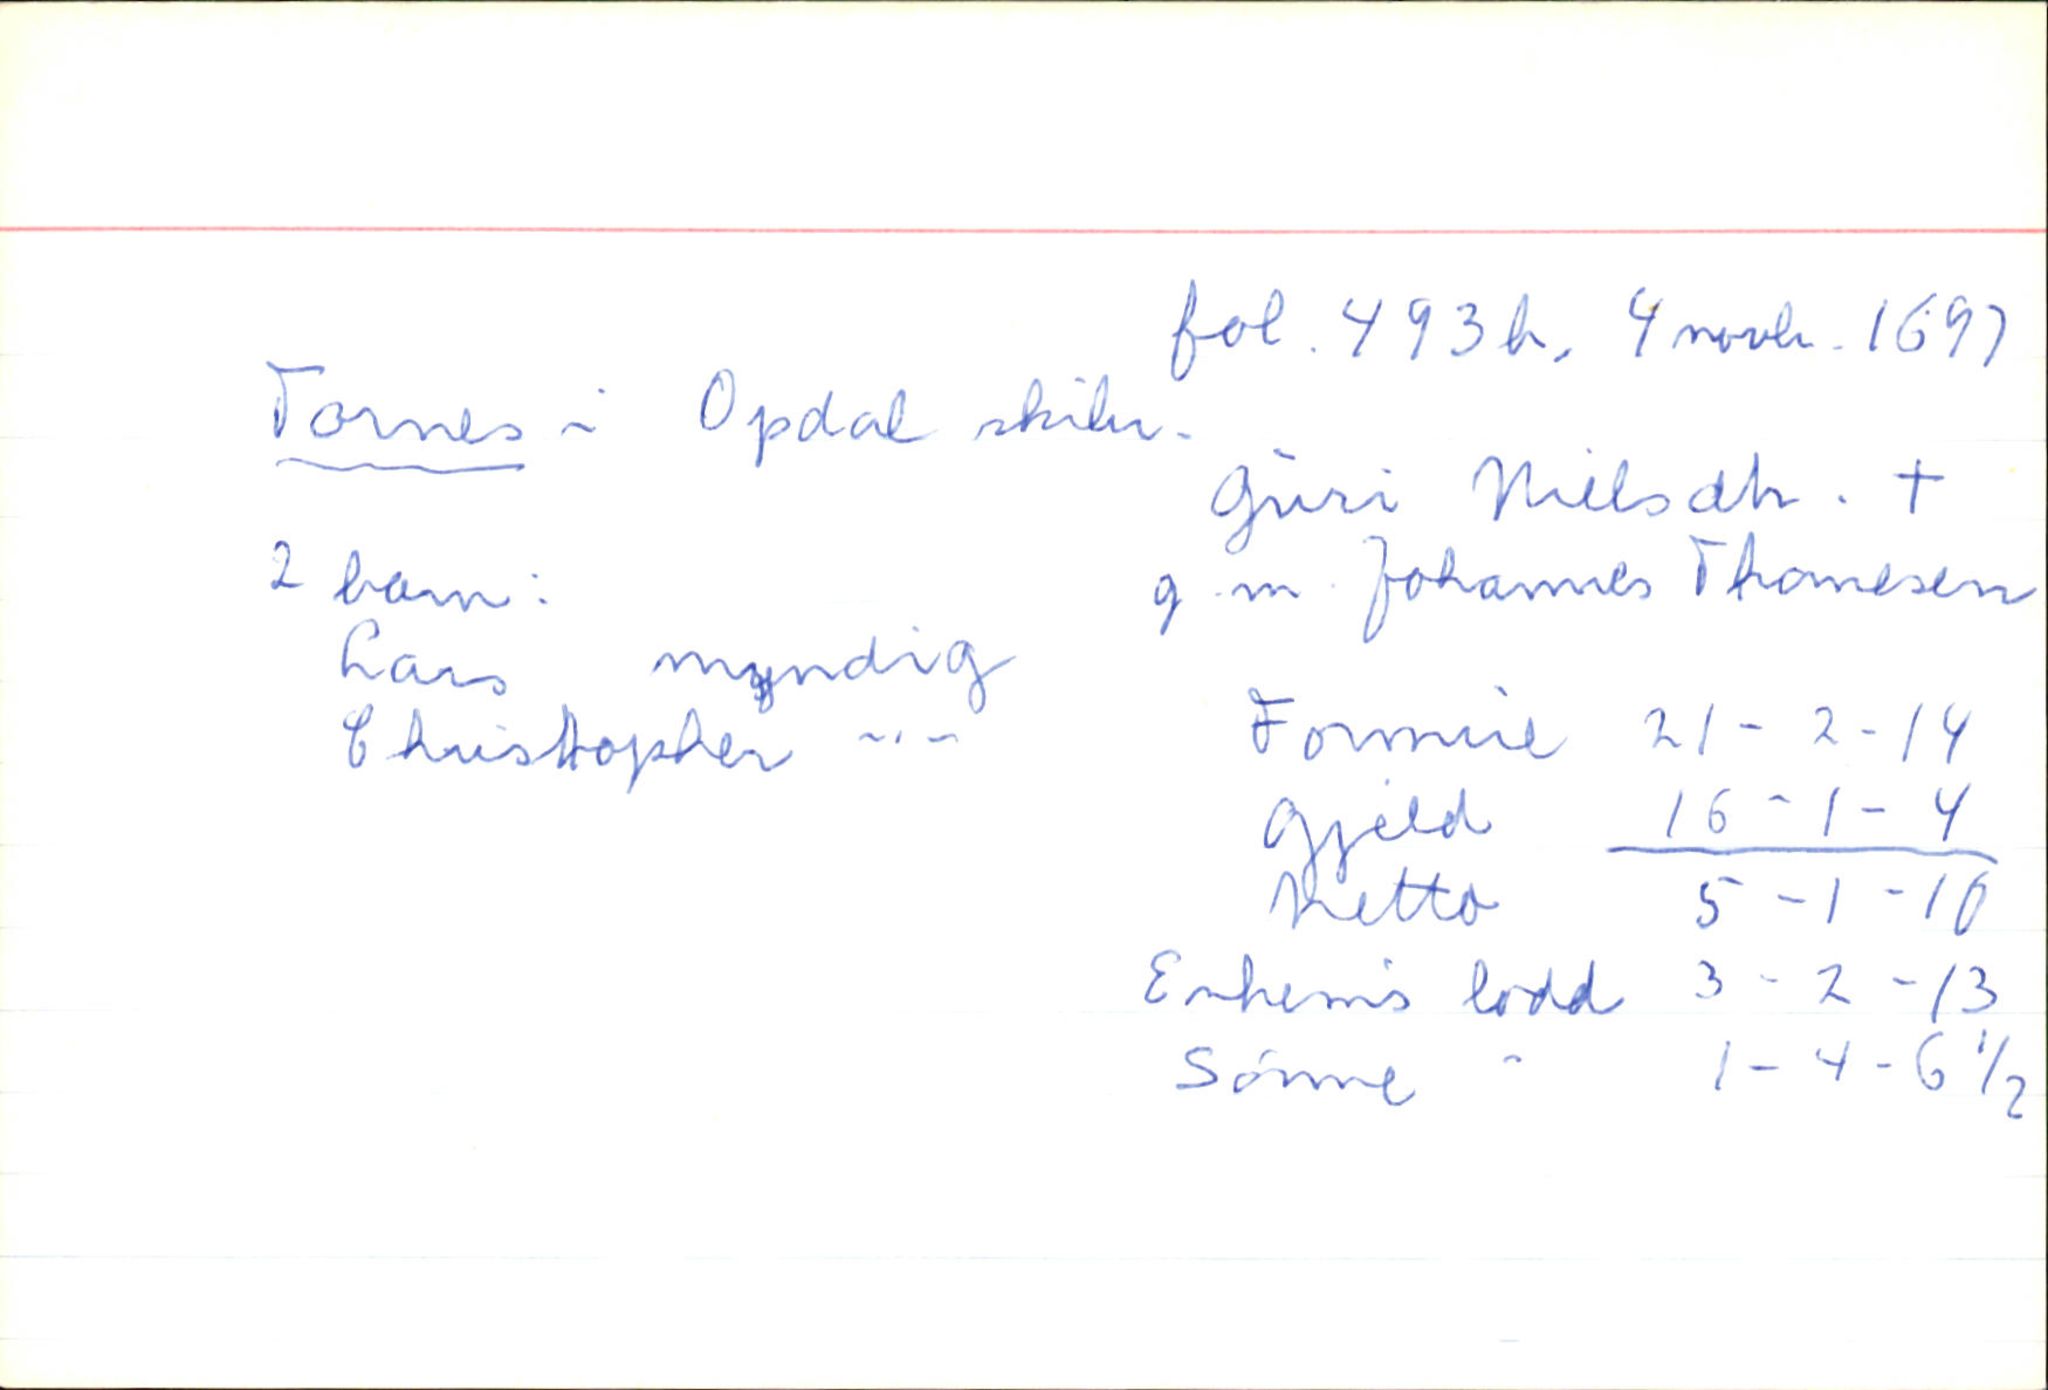 fol. 493b, 4 novb. 1697
Tornes i Opdal skibr.
Guri Nielsdtr. +
2 barn:
g.m. Johannes Thomesen
Lars myndig
Christopher -"-
Formue 21 - 2 - 14
Gjeld 16 - 1 - 4
Netto 5 - 1 - 10
Enkem's lodd 3 - 2 - 13
Sønne " 1 - 4 - 6 1/2